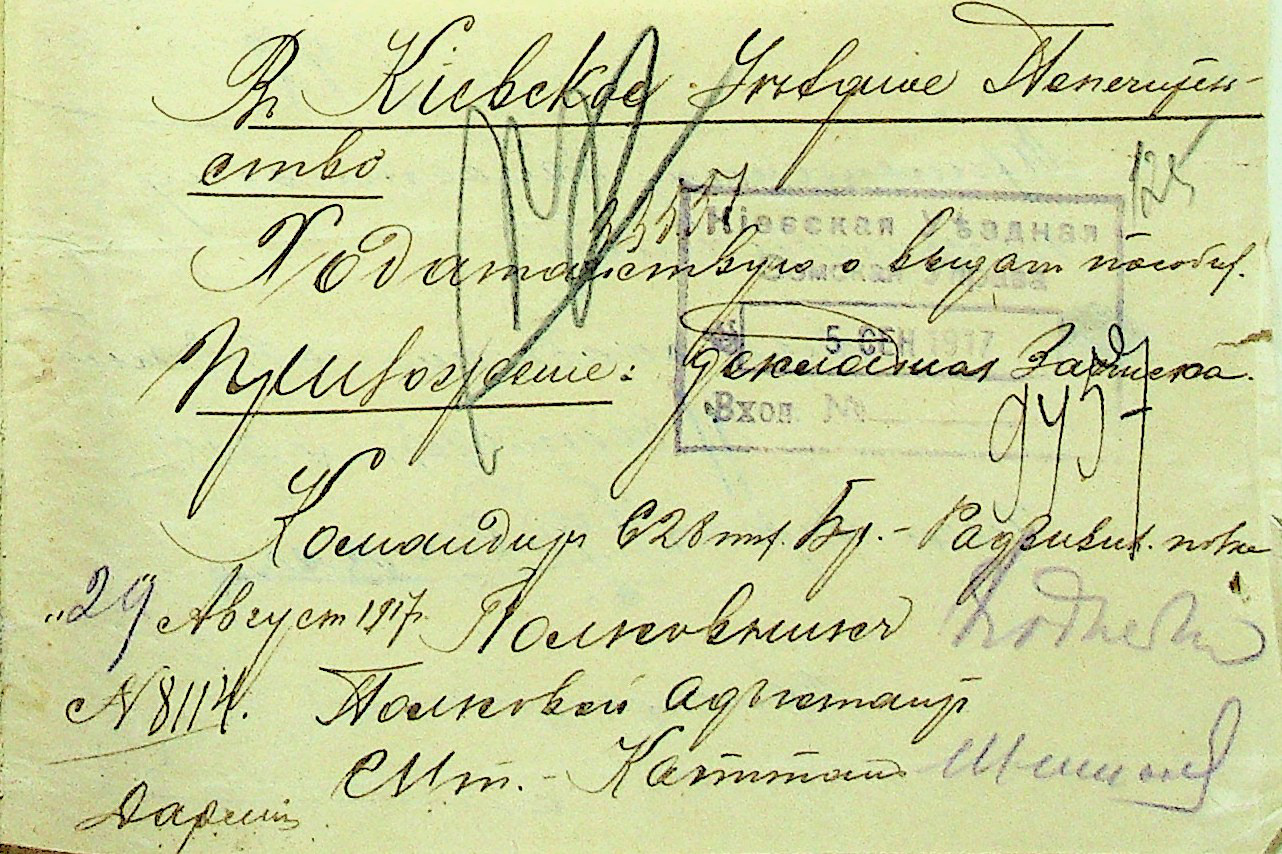 Въ Кіевское Уѣздное Попечитель-
ство
125
Ходатайствую о выдачѣ пособія.
Кіевская Уѣздная
Земская Управа
5 СЕН 1917
Вход. №
Приложеніе: докладная Записка.
9457
Командиръ 628 пѣх. Бр.-Радзивил. полка
"29" Август 1917г. Полковникъ
№ 8114. Полковой Адъютантъ
Шт.-Капитанъ